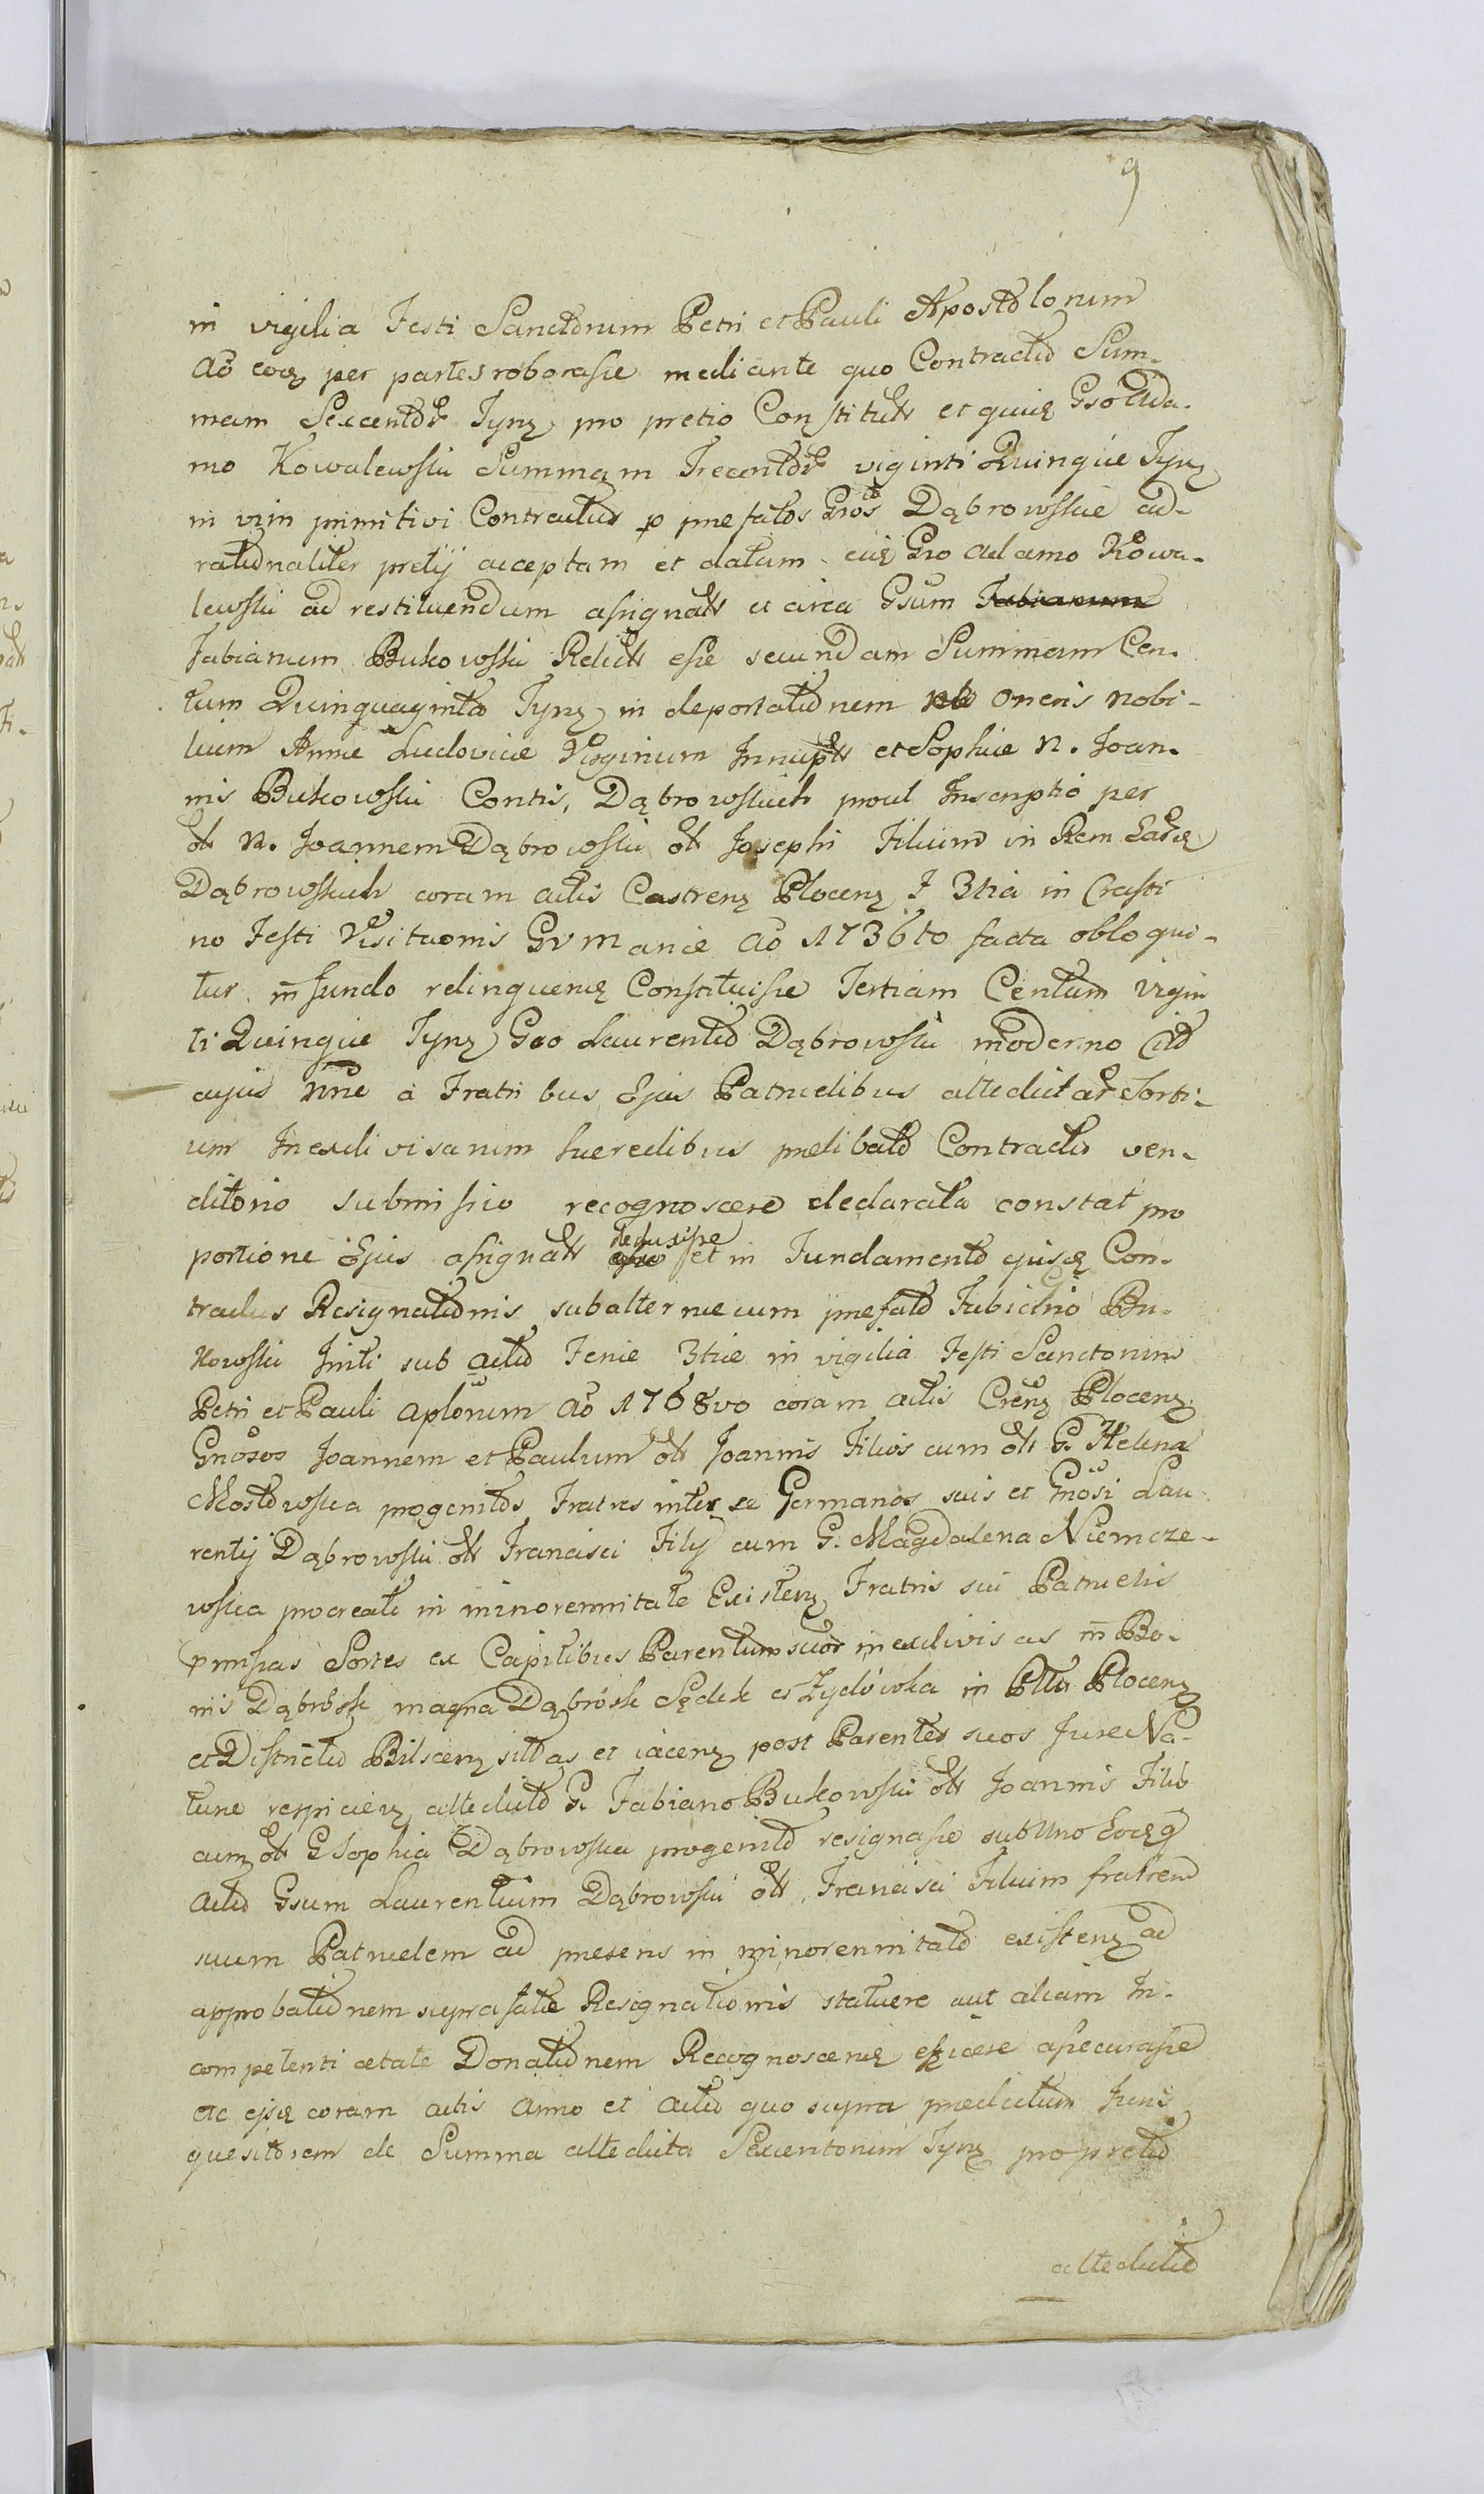 9
in vigilia Festi Sanctorum Petri et Pauli Apostolorum
Aō eodē per partes roborasse mediante quo Contractu Sum-
mam Sexcentor Tynf pro pretio Constitut et quidē Gso Ada-
mo Kowalewski Summam Trecentor viginti Quinque Tynf
in vim primitivi Contractus p prefatos Gnos Dąbrowskie ad-
rationaliter pretij acceptam et datam eidē Gso Adamo Kowa-
lewski ad restituendum assignatt et circa Gsum Fabianum
Fabianum Bukowski Relictt esse secundam Summam Cen-
tum Quinquaginta Tynf in deportationem oneris Nobi-
lium Anne Ludovice Virginum Innuptt et Sophie N. Joan-
nis Bukowski Contis, Dąbrowskich prout Inscriptio per
ott N. Joannem Dąbrowski ott Josephi Filium in Rem Earūdē
Dąbrowskich coram Actis Castrenj Plocenj F 3tia in Crasti
no Festi Visitaonis Gv Marie Aō 1736to facta obloqui-
tur in fundo relinquendē Constituisse Tertiam Centum Vigin
ti Quinque Tynf Gso Laurentio Dąbrowski moderno Citto
cujus nōne a Fratribus Ejus Patruelibus attedictar Sorti-
um Inexdivisarum heredibus prelibato Contractu ven-
ditorio submissio recognoscere declarata constat pro
portione Ejus assignatt esse dedusisse et in Fundamento ejusdē Con-
tractus Resignationis subalternecum prefato Fabiano Bu-
kowski Initi sub actu Ferie 3tie in vigilia Festi Sanctorum
Petri et Pauli Aplorum Aō 1768vo coram Actis Crenj Plocenj
Gnosos Joannem et Paulum ott Joannis Filios cum ott G. Helena
Mostowska progenitos Fratres inter se Germanos suis et Gnosi Lau-
rentij Dąbrowski ott Francisci Filij cum G. Magdalena Niemcze-
wska procreati in minorennitate Existenj Fratris sui Patruelis
p missas Sortes ex Capitibus Parentum suor inexdivisas in Bo-
nis Dąbrosk magna Dąbrósk Sędek et Zydówka in Pttu Plocenj
et Districtu Bilscenj sitas et iacenj post Parentes suos Jure Na-
ture respicienj attedicto G. Fabiano Bukowski ott Joannis Filio
cum ott G Sophia Dąbrowska progenito resignasse sub uno Eodēq
Actu Gsum Laurentium Dąbrowski ott Francisci Filium fratrem
suum Patruelem ad presens in minorennitate existenj ad
approbationem suprafate Resignationis statuere aut aliam In-
competenti aetate Donationem Recognoscendē efficere assecurasse
ac ejsdē coram actis Anno et Actu quo supra predictum Juris
quesitorem de Summa attedicta Sexcentorum Tynf pro pretio
attedicto